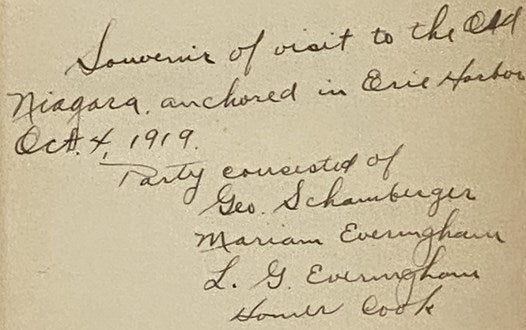 Souvenir of visit to the Old
Niagara, anchored in Erie Harbor
Oct. 4, 1919.
Party consisted of
Geo. Schamberger
Mariam Everingham
L. G. Everingham
Homer Cook